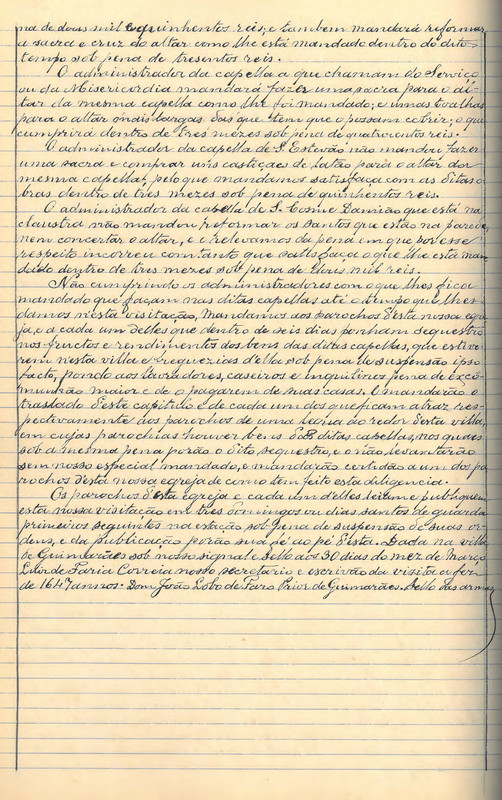 na de dous mil e quinhentos reis; e tambem mandará reformar
a sacra e cruz do altar como lhe está mandado dentro do dito
tempo sob pena de tresentos reis.
O administrador da capella a que chamam do Serviço
ou da Misericordia mandará fazer uma sacra para o al-
tar da mesma capella como lhe foi mandado; e umas toalhas
para o altar mais largas das que tem que o possam cobrir; o que
cumprirá dentro de tres mezes sob pena de quatrocentos reis.
O administrador da capella de S. Estevão não mandou fazer
uma sacra e comprar uns castiçaes de latão para o altar da
mesma capella, pelo que mandamos satisfaça com as ditas o-
bras dentro de tres mezes sob pena de quinhentos reis.
O administrador da capella de S. Cosme e Damião que está na
claustra não mandou reformar os santos que estão na parede,
nem concertar o altar, e o relevamos da pena em que por esse
respeito incorreu comtanto que satisfaça o que lhe está man-
dado dentro de tres mezes sob pena de dous mil reis.
Não cumprindo os administradores com o que lhes fica
mandado que façam nas ditas capellas até o tempo que lhes
damos n'esta visitação, mandamos aos parochos d'esta nossa egre-
ja, e a cada um d'elles que dentro de seis dias ponham sequestro
nos fructos e rendimentos dos bens das ditas capellas, que estive-
rem nesta villa e freguezias d'ella sob pena de suspensão ipso
facto, pondo aos lavradores, caseiros e inquilinos pena de exco-
munhão maior e de o pagarem de suas casas. E mandarão o
traslado d'este capitulo e de cada um dos que ficam atraz res-
pectivamente aos parochos de uma legua ao redor d'esta villa,
em cujas parochias houver bens das ditas capellas, nos quaes
sob a mesma pena porão o dito sequestro, e o não levantarão
sem nosso especial mandado, e mandarão certidão a um dos pa-
rochos d'esta nossa egreja de como tem feito esta diligencia.
Os parochos d'esta egreja e cada um d'elles leiam e publiquem
esta nossa visitação em tres domingos ou dias santos de guarda
primeiros seguintes na estação sob pena de suspensão de suas or-
dens, e da publicação porão sua fé ao pé d'esta. Dada na villa
de Guimarães sob nosso signal e sello aos 30 dias do mez de Março
de Faria Correia nosso secretario e escrivão da visita a fez
de 1647 annos. Dom João Lobo de Faro Prior de Guimarães. Sello das armas